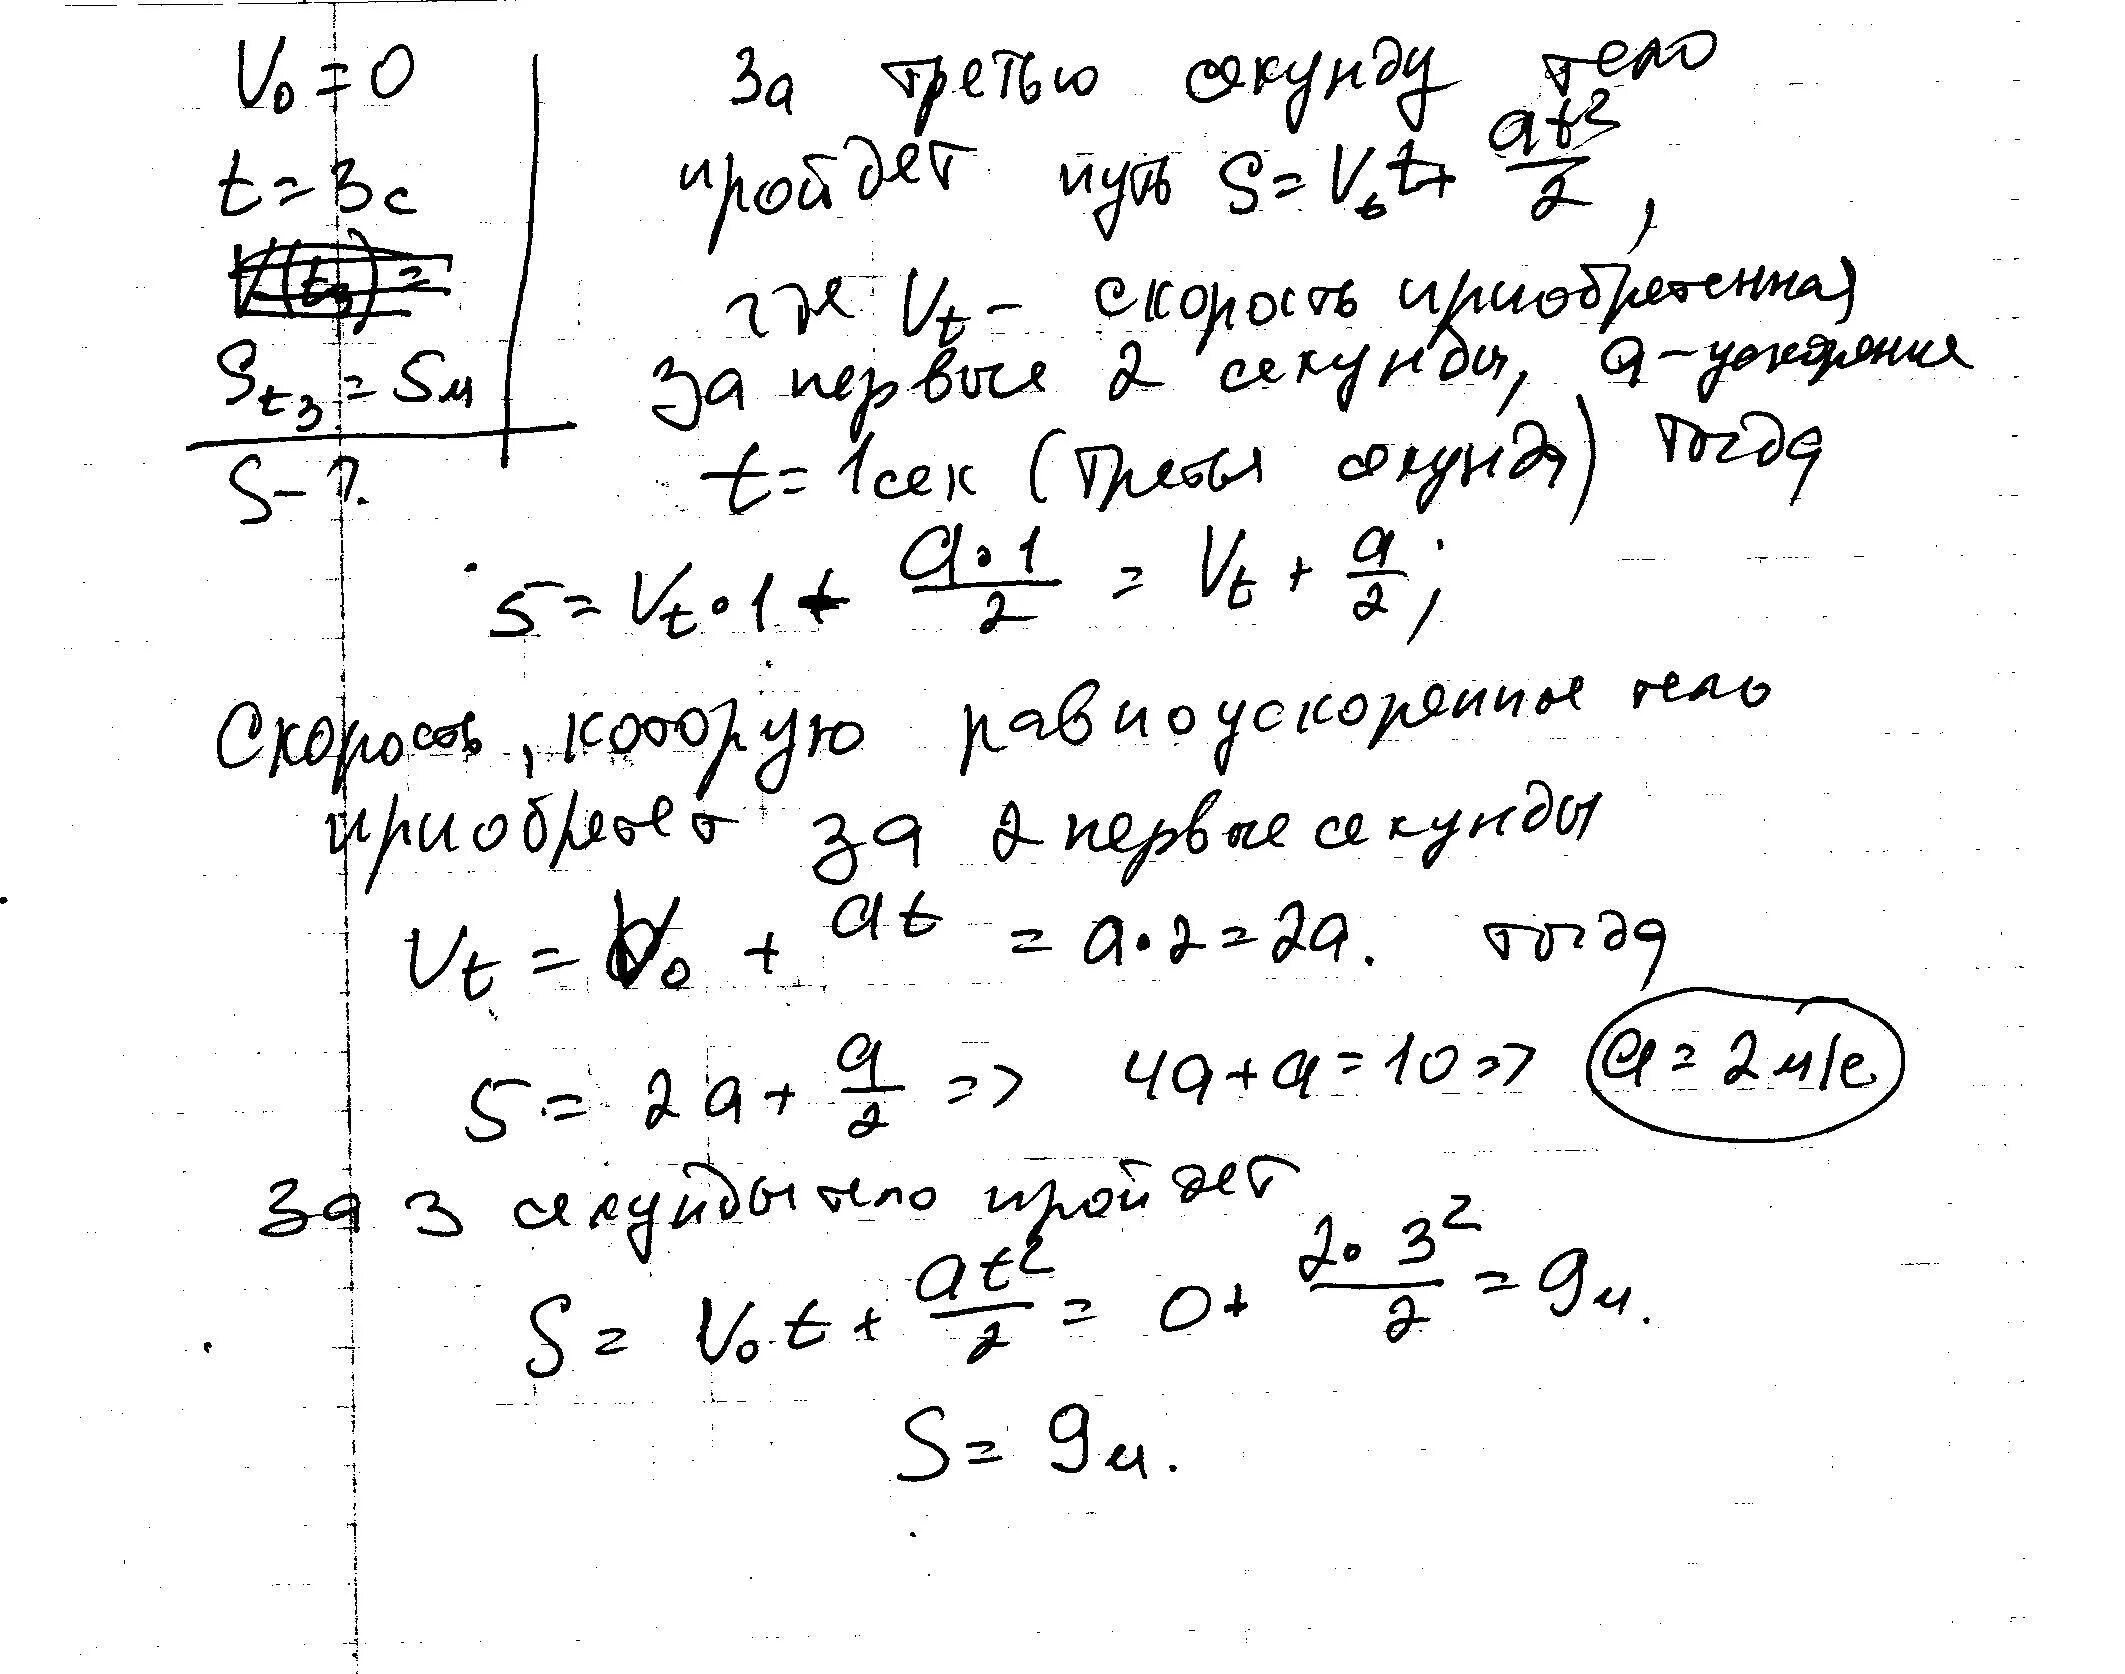 V₀ = 0
t = 3с
V(t₃) =
S t₃ = 5м
S - ?
За третью секунду тело
пройдет путь S = V₀t + at²/2,
где Vt - скорость приобретенная
за первые 2 секунды, a - ускорение
t = 1 сек (третья секунда) тогда
5 = Vt · 1 + a·1/2 = Vt + a/2;
Скорость, которую равноускоренное тело
приобретет за 2 первые секунды
Vt = V₀ + at = a·2 = 2a. тогда
5 = 2a + a/2 => 4a + a = 10 => a = 2 м/с
За 3 секунды тело пройдет
S = V₀t + at²/2 = 0 + 2·3²/2 = 9м.
S = 9м.